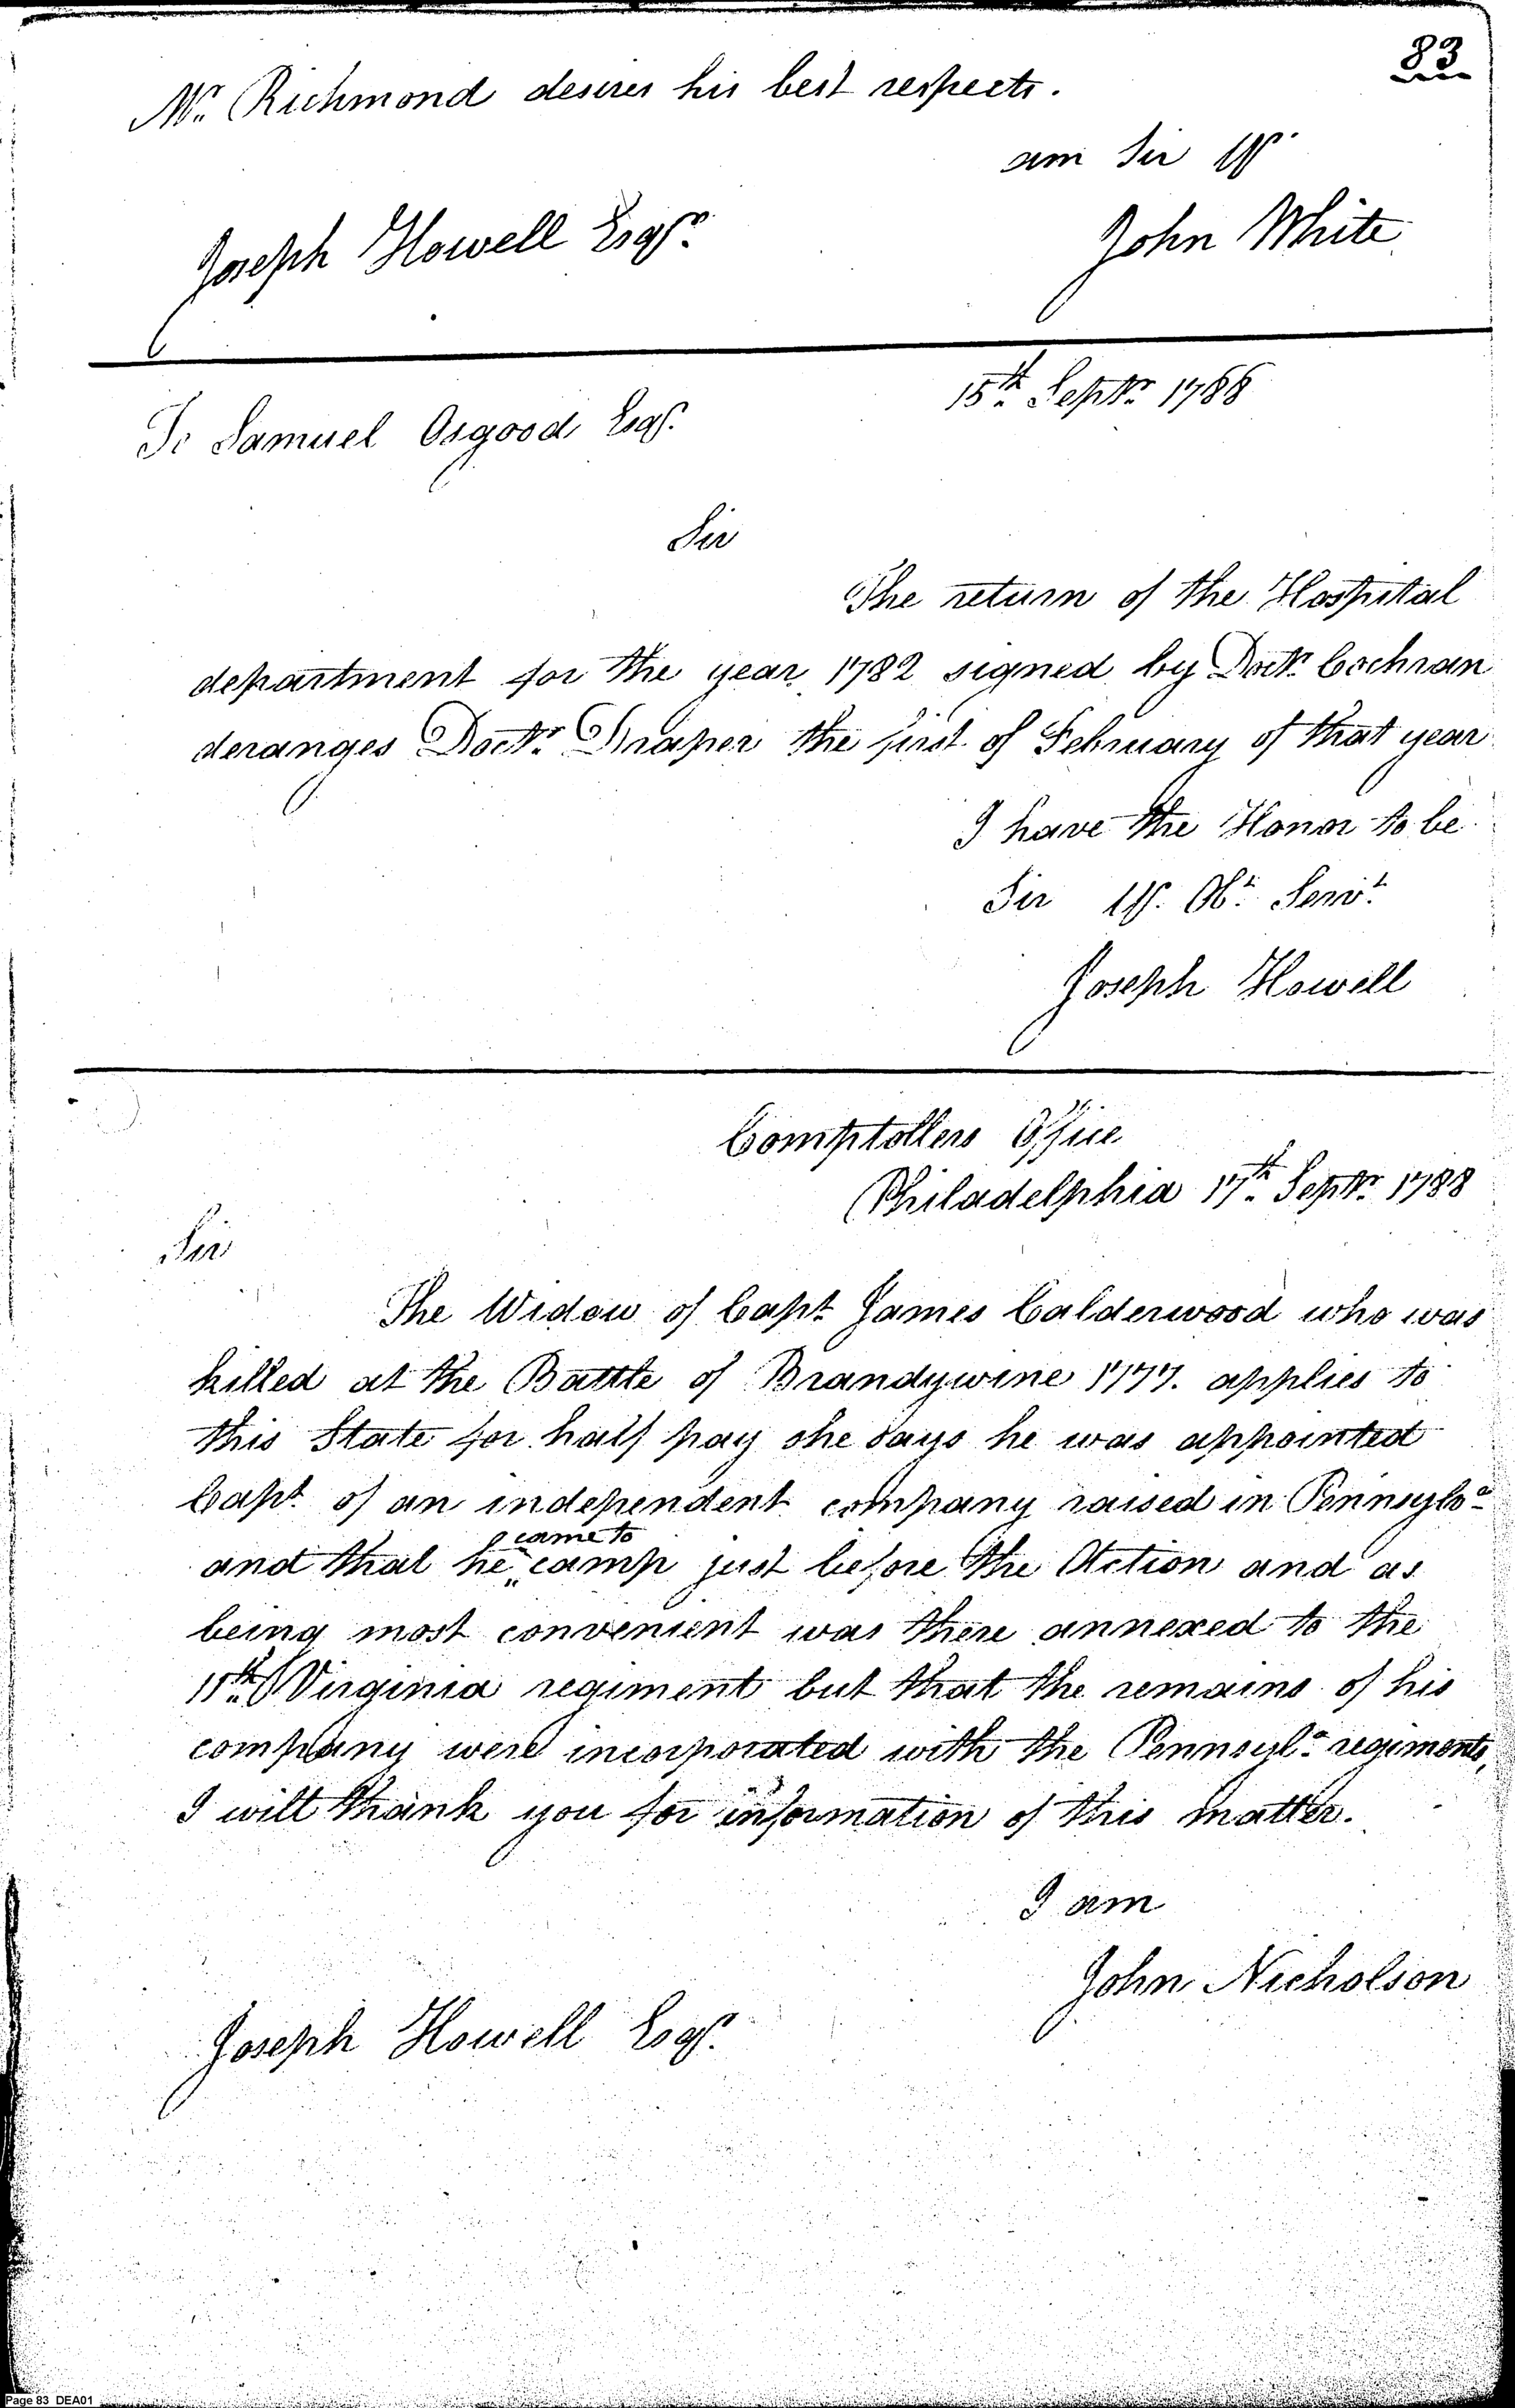 83
Mr. Richmond desires his best respects.
am Sir Yr
Joseph Howell Esqr.
John White
15th Septr 1788
To Samuel Osgood Esqr.
Sir
The return of the Hospital
department for the year 1782 signed by Doctr Cochran
deranges Doctr Draper the first of February of that year
I have the Honor to be
Sir Yr. Obt Servt
Joseph Howell
Comptollers Office
Philadelphia 17th Septr 1788
Sir
The Widow of Capt James Calderwood who was
killed at the Battle of Brandywine 1777. applies to
this State for half pay she says he was appointed
Capt of an independent company raised in Pennsylva
and that he came to camp just before the Action and as
being most convenient was there annexed to the
11th Virginia regiment but that the remains of his
company were incorporated with the Pennsyla regiments,
I will thank you for information of this matter.
I am
John Nicholson
Joseph Howell Esqr.
Page 83 DEA01